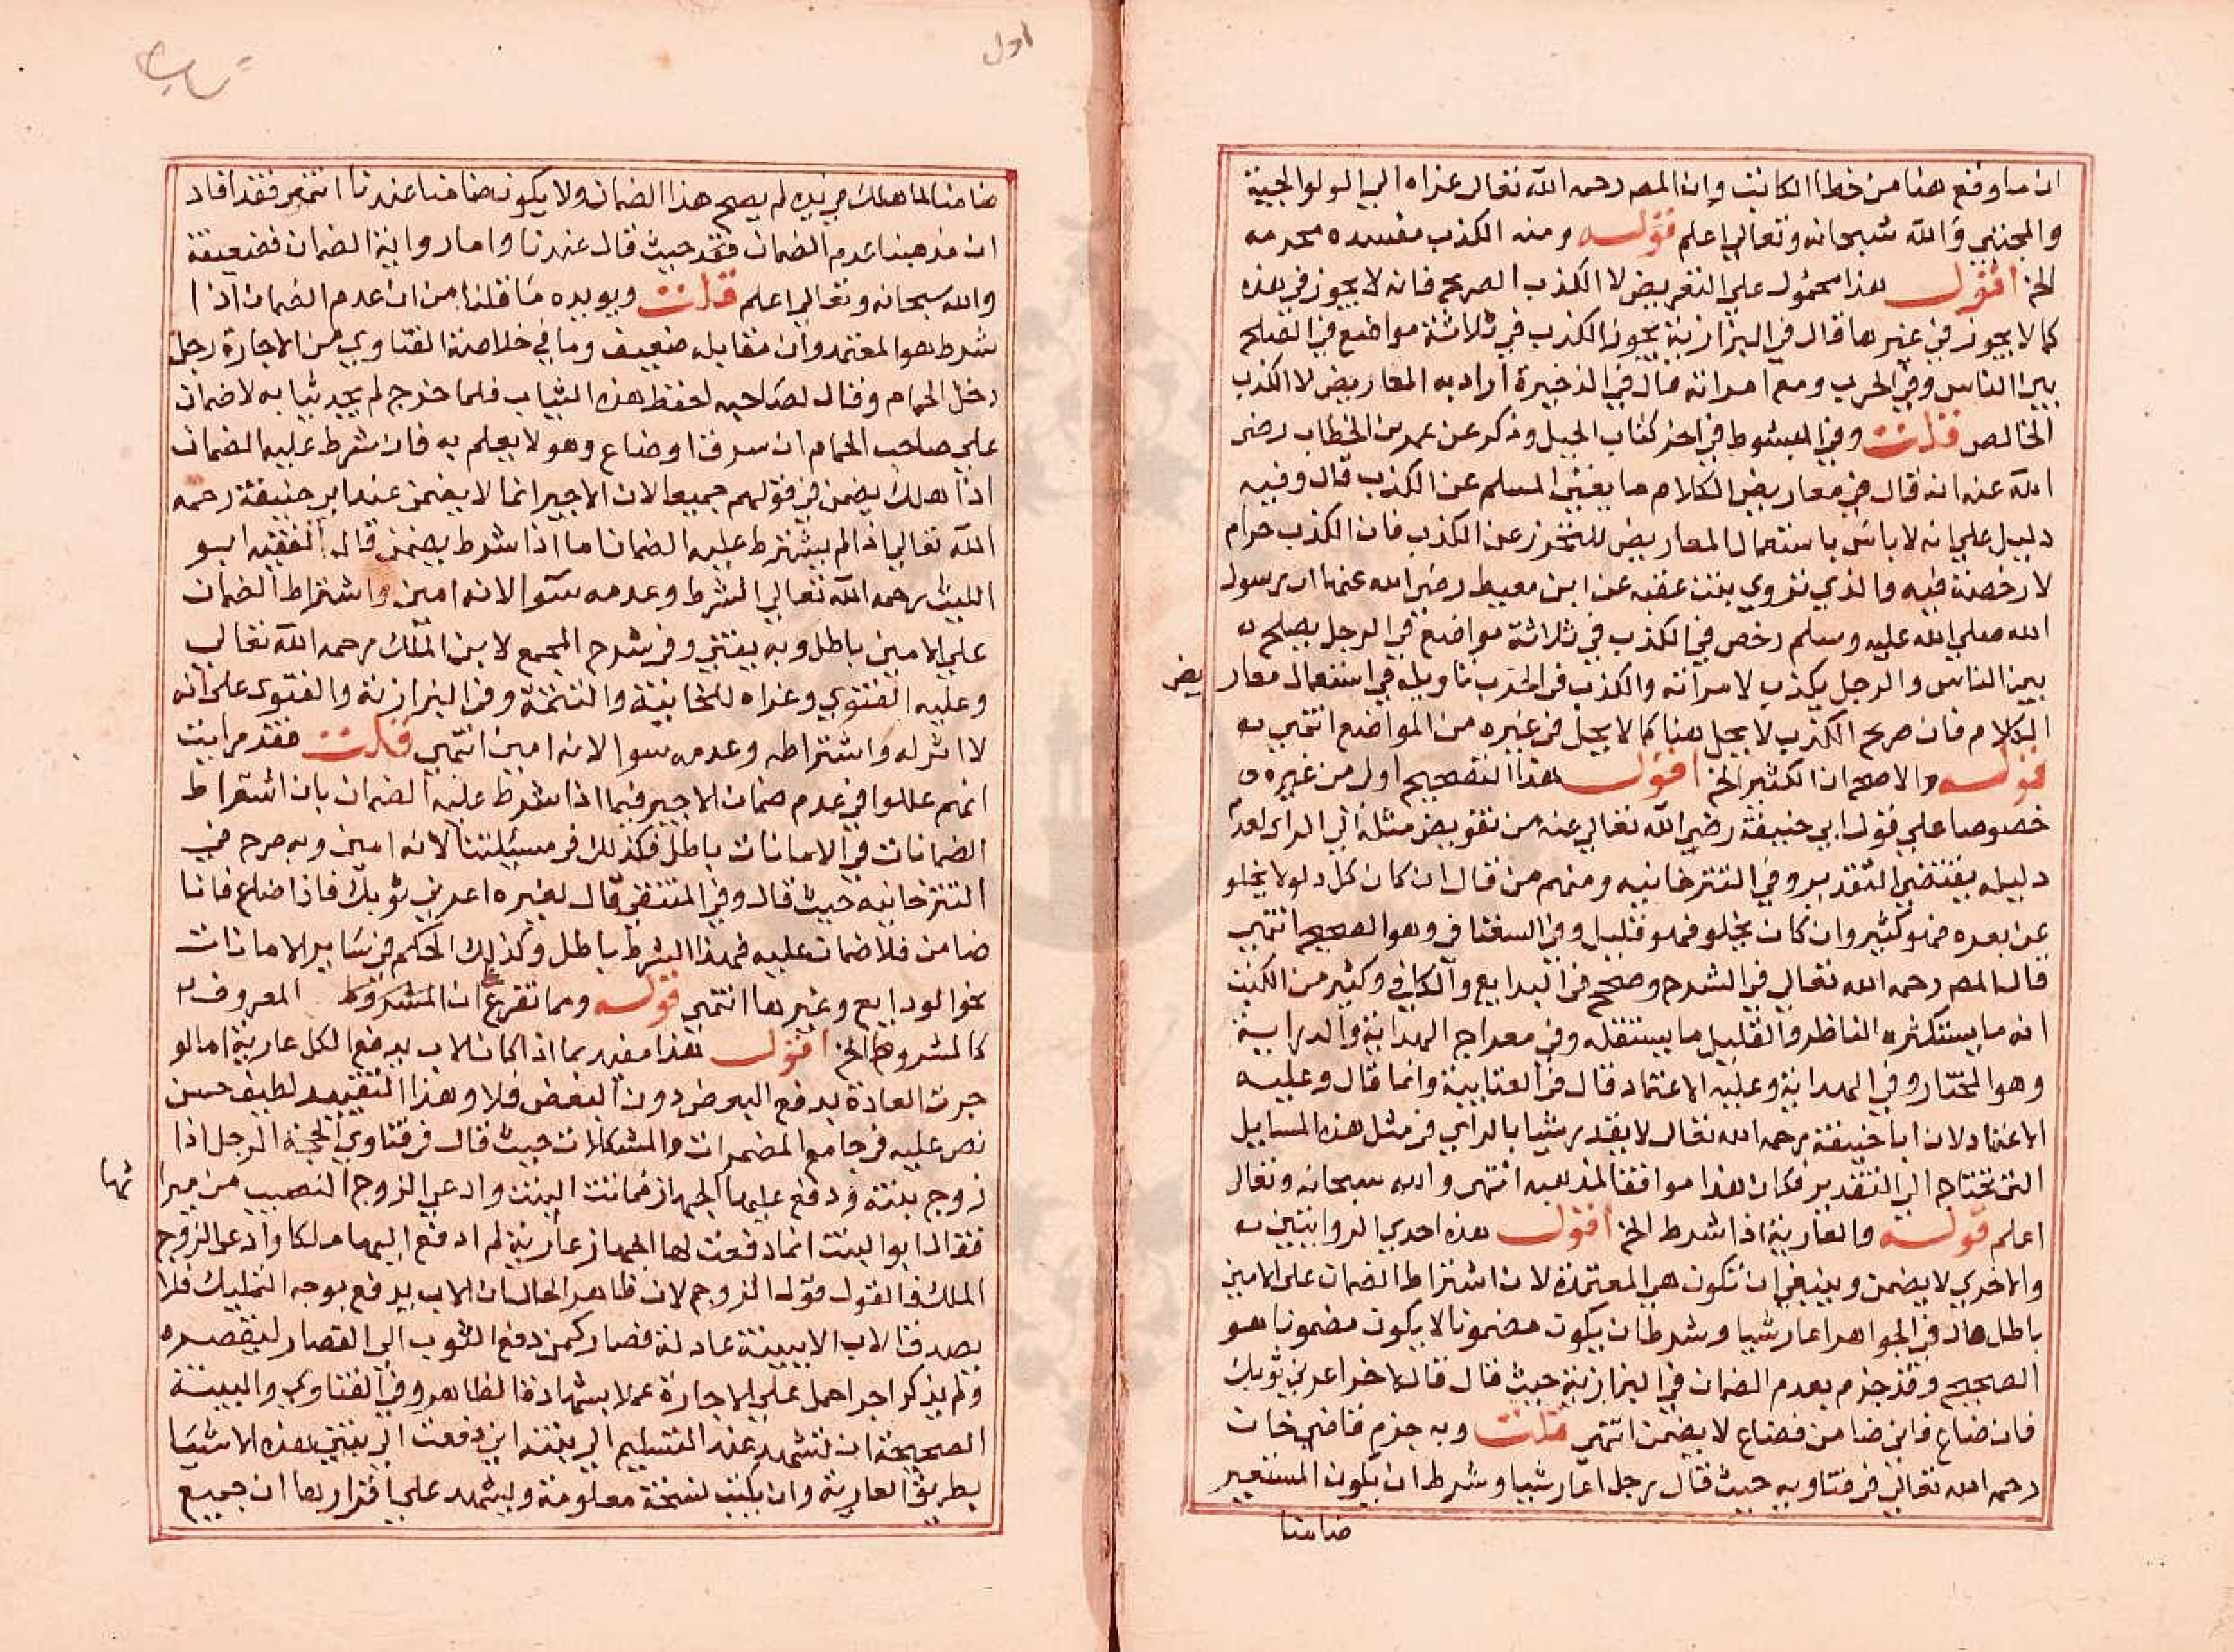 ان ما وقع هنا من خطا الكاتب وان المص رحمه الله تعالى عزاه الى الولوالجية
والمجتبي والله سبحانه وتعالى اعلم قوله ومنه الكذب مفسده محرمه
الخ اقول هذا محمول على التعريض لا الكذب الصريح فانه لا يجوز في هذه
كما لا يجوز في غيرها قال في البزازية يجوز الكذب في ثلاثة مواضع في الصلح
بين الناس وفي الحرب ومع امراته قال في الذخيرة اراد به المعاريض لا الكذب
الخالص قلت وفي المبسوط في اخر كتاب الحيل وذكر عن عمر بن الخطاب رضى
الله عنه انه قال في معاريض الكلام ما يغني المسلم عن الكذب قال وفيه
دليل على انه لا باس باستعمال المعاريض للتحرز عن الكذب فان الكذب حرام
لا رخصة فيه والذي تروي بنت عقبه عن ابن معيط رضى الله عنها ان رسول
الله صلى الله عليه وسلم رخص في الكذب في ثلاثة مواضع في الرجل يصلح
بين الناس والرجل يكذب لامراته والكذب في الحرب تاويله في استعمال معار
يض
الكلام فان صريح الكذب لا يحل هنا كما لا يحل في غيره من المواضع انتهى
قوله والاصح ان الكثير الخ اقول هذا التصحيح اولى من غيره
خصوصا على قول ابي حنيفة رضي الله تعالى عنه من تفويض مثله الى الراى لعدم
دليل يقتضي التقدير وفي التترخانيه ومنهم من قال ان كان كل دلو لا يخلو
عن بعره فهو كثير وان كان يخلو فهو قليل وفي السغناقي وهو الصحيح انتهى
قال المص رحمه الله تعالى في الشرح وصحح في البدايع والكافي وكثير من الكتب
انه ما يستكثره الناظر والقليل ما يستقله وفي معراج الدراية والهداية
وهو المختار وفي الهداية وعليه الاعتماد قال في العناية وانما قال وعليه
الاعتماد لان ابا حنيفة رحمه الله تعالى لا يقدر شيا بالراي في مثل هذه المسايل
التي تحتاج الى التقدير فكان هذا موافقا لمذهبه انتهى والله سبحانه وتعالى
اعلم قوله والعارية اذا شرط الخ اقول هذه احدي الروايتين
والاخري لا يضمن وينبغي ان تكون هي المعتمدة لان اشتراط الضمان على الامين
باطل قال في الجواهر اعار شيا وشرط ان يكون مضمونا لا يكون مضمونا هو
الصحيح وقد جزم بعدم الضمان في البزازية حيث قال قال لاخر اعرني ثوبك
فان ضاع فاني ضامن فضاع لا يضمن انتهى قلت وبه جزم قاضي خان
رحمه الله تعالى في فتاويه حيث قال رجل اعار شيا وشرط ان يكون المستعير
ضامنا
اول
ضامنا لما هلك في يده لم يصح هذا الضمان ولا يكون ضامنا عندنا انتهى فقد افاد
ان مذهبنا عدم الضمان فقد حيث قال عندنا واما رواية الضمان فضعيفة
والله سبحانه وتعالى اعلم قلت ويويده ما قلنا من ان عدم الضمان اذا
شرط هو المعتمد وان مقابله ضعيف وما في خلاصة الفتاوي من الاجارة رجل
دخل الحمام وقال لصاحبه احفظ هذه الثياب فلما خرج لم يجد ثيابه لا ضمان
على صاحب الحمام ان سرق او ضاع وهو لا يعلم به فان شرط عليه الضمان
اذا هلك يضمن في قولهم جميعا لان الاجير انما لا يضمن عند ابي حنيفة رحمه
الله تعالى اذا لم يشترط عليه الضمان اما اذا شرط يضمن قال الفقيه ابو
الليث رحمه الله تعالى الشرط وعدمه سوآ لانه امين واشتراط الضمان
على الامين باطل وبه يفتي وفي شرح المجمع لابن الملك رحمه الله تعالى
وعليه الفتوي وعزاه للخانية والتتمة وفي البزازية والفتوى على انه
لا اثر له واشتراطه وعدمه سوا لانه امين انتهى قلت فقد رايت
انهم عللوا في عدم ضمان الاجير فيما اذا شرط عليه الضمان بان اشتراط
الضمانات في الامانات باطل فكذلك في مسئلتنا لانه امين وبه صرح في
التترخانيه حيث قال وفي المنتقي قال لغيره اعرني ثوبك فاذا ضاع فانا
ضامن فلا ضمان عليه فهذا الشرط باطل وكذلك الحكم في ساير الامانات
نحو الودايع وغيرها انتهى قوله ومما تفرع ان المشروط المعروف
كالمشروط الخ اقول هذا مقيد بما اذا كان الاب يدفع الكل عارية اما لو
جرت العادة بدفع البعض دون البعض فلا وهذا التقييد لطيف حسن
نص عليه في جامع المضمرات والمشكلات حيث قال في فتاوي الحجة الرجل اذا
زوج بنته ودفع عليها الجهاز فماتت البنت وادعى الزوج النصيب من ميرا
ثها
فقال ابو البنت انما دفعت لها الجهاز عارية لم ادفع اليها ملكا وادعى الزوج
الملك فالقول قول الزوج لان ظاهر الحال ان الاب يدفع بوجه التمليك فلا
يصدق الاب الا ببينة عادلة فصار كمن دفع الثوب الى القصار ليقصره
ولم يذكر اجرا حمل على الاجارة عملا بشهادة الظاهر وفي الفتاوي والبينة
الصحيحة ان تشهد عند التسليم الى بنته اني دفعت الى بنتي هذه الاشيا
بطريق العارية وان يكتب نسخة معلومة ويشهد على اقرارها ان جميع